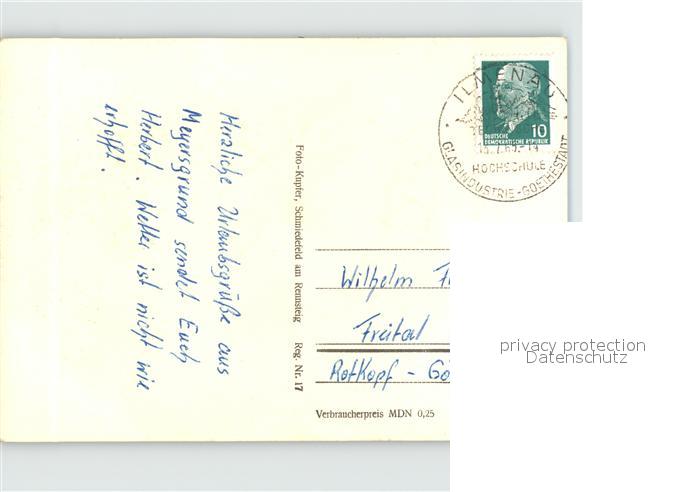 Herzliche Urlaubsgrüße aus
Meyersgrund sendet Euch
Herbert. Wetter ist nicht wie
erhofft.
Foto-Kupfer, Schmiedefeld am Rennsteig Reg. Nr. 17
ILMENAU
DEUTSCHE
DEMOKRATISCHE REPUBLIK
10
HOCHSCHULE
GLASINDUSTRIE - GOETHESTADT
Wilhelm
Freital
Rotkopf -
Verbraucherpreis MDN 0,25
privacy protection
Datenschutz